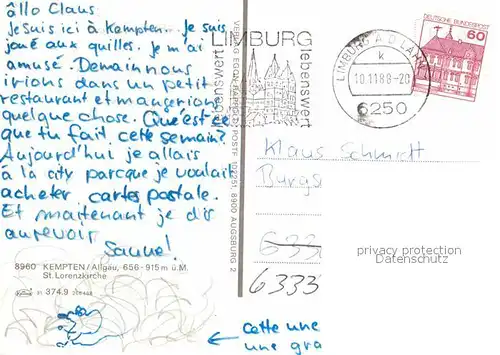 âllo Claus.
Je suis ici à Kempten.. Je suis
joué aux quilles. Je m'ai
amusé. Demain nous
irions dans un petit
restaurant et mangerions
quelque chose. Que'est ce
que tu fait cette semaine?
Aujourd'hui je allais
à la city parcque je voulait
acheter cartes postale.
Et maitenant je dis
aurevoir
Sanne!
8960 KEMPTEN/Allgäu, 656-915 m ü.M.
St. Lorenzkirche
91 374.9
8900 AUGSBURG 2
LIMBURG
liebenswert
lebenswert
LIMBURG A D LAHN
k
10.11.88-20
6250
DEUTSCHE BUNDESPOST
60
Klaus Schmidt
Burgs
6333
privacy protection
Datenschutz
← Cette une
une gra